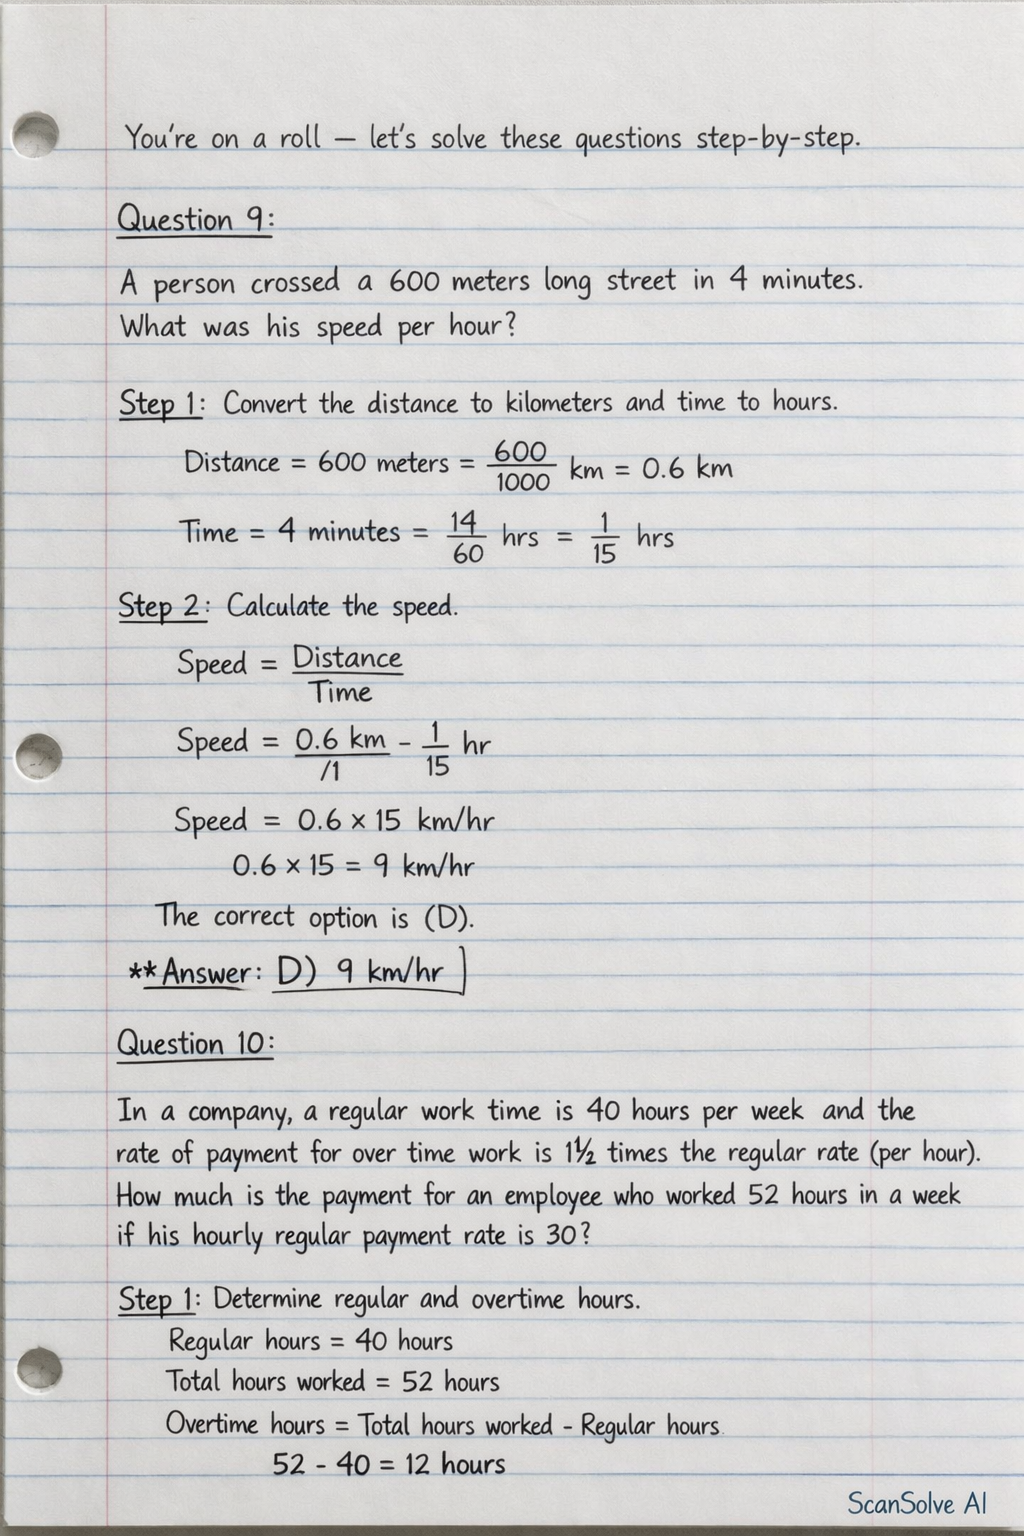 You're on a roll — let's solve these questions step-by-step.
Question 9:
A person crossed a 600 meters long street in 4 minutes.
What was his speed per hour?
Step 1: Convert the distance to kilometers and time to hours.
Distance = 600 meters = 600/1000 km = 0.6 km
Time = 4 minutes = 14/60 hrs = 1/15 hrs
Step 2: Calculate the speed.
Speed = Distance/Time
Speed = 0.6 km/ /1 - 1/15 hr
Speed = 0.6 × 15 km/hr
0.6 × 15 = 9 km/hr
The correct option is (D).
**Answer: D) 9 km/hr
Question 10:
In a company, a regular work time is 40 hours per week and the
rate of payment for over time work is 1½ times the regular rate (per hour).
How much is the payment for an employee who worked 52 hours in a week
if his hourly regular payment rate is 30?
Step 1: Determine regular and overtime hours.
Regular hours = 40 hours
Total hours worked = 52 hours
Overtime hours = Total hours worked - Regular hours.
52 - 40 = 12 hours
ScanSolve AI